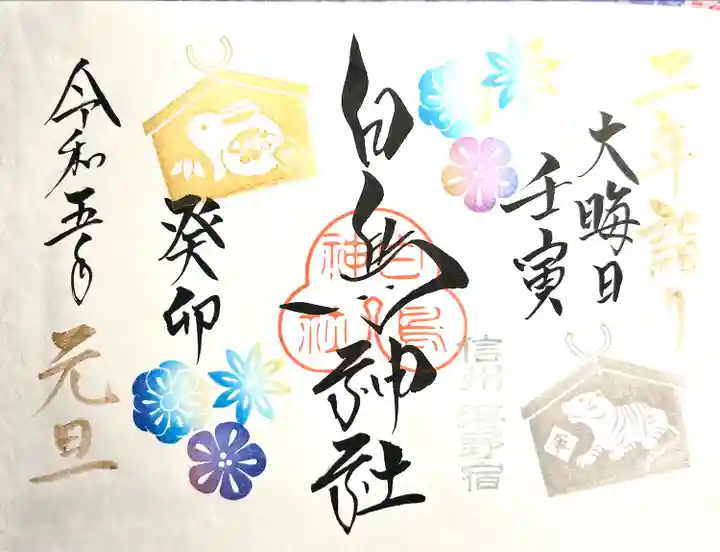 二年詣り
大晦日
壬寅
信州 海野宿
白鳥神社
白鳥
神社
癸卯
令和五年
元旦